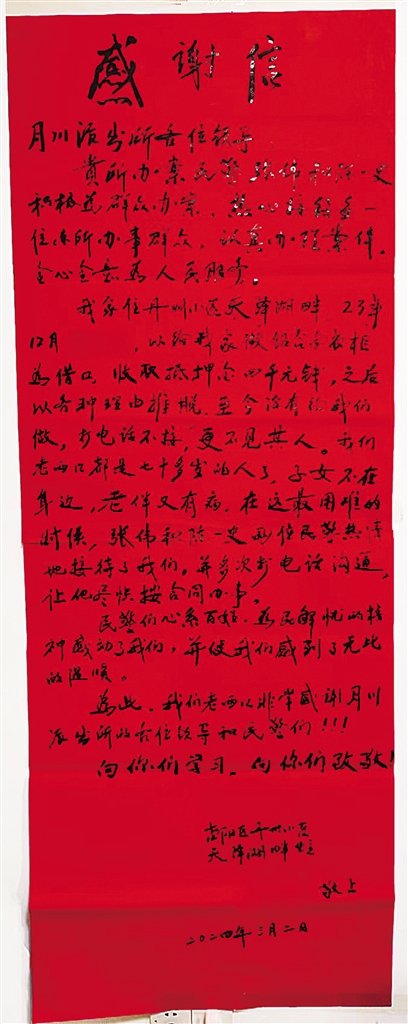 感谢信
月川派出所各位领导
贵所办案民警张伟和陈一史
积极为群众办案,热心接待每一
位来所办事群众,认真办理案件。
全心全意为人民服务。
我家住丹州小区天泽湖畔,23年
12月 ,以给我家做组合衣柜
为借口,收取抵押金四千元钱,之后
以各种理由推脱,至今没有给我们
做,打电话不接,更不见其人。我们
老两口都是七十多岁的人了,子女不在
身边,老伴又有病,在这最困难的
时候,张伟和陈一史两位民警热情
地接待了我们。并多次打电话沟通,
让他尽快按合同办事。
民警们心系百姓,为民解忧的精
神感动了我们,并使我们感到了无比
的温暖。
为此,我们老两口非常感谢月川
派出所的各位领导和民警们!!!
向你们学习,向你们致敬!
丹州小区
天泽湖畔
敬上
二〇二四年三月二日